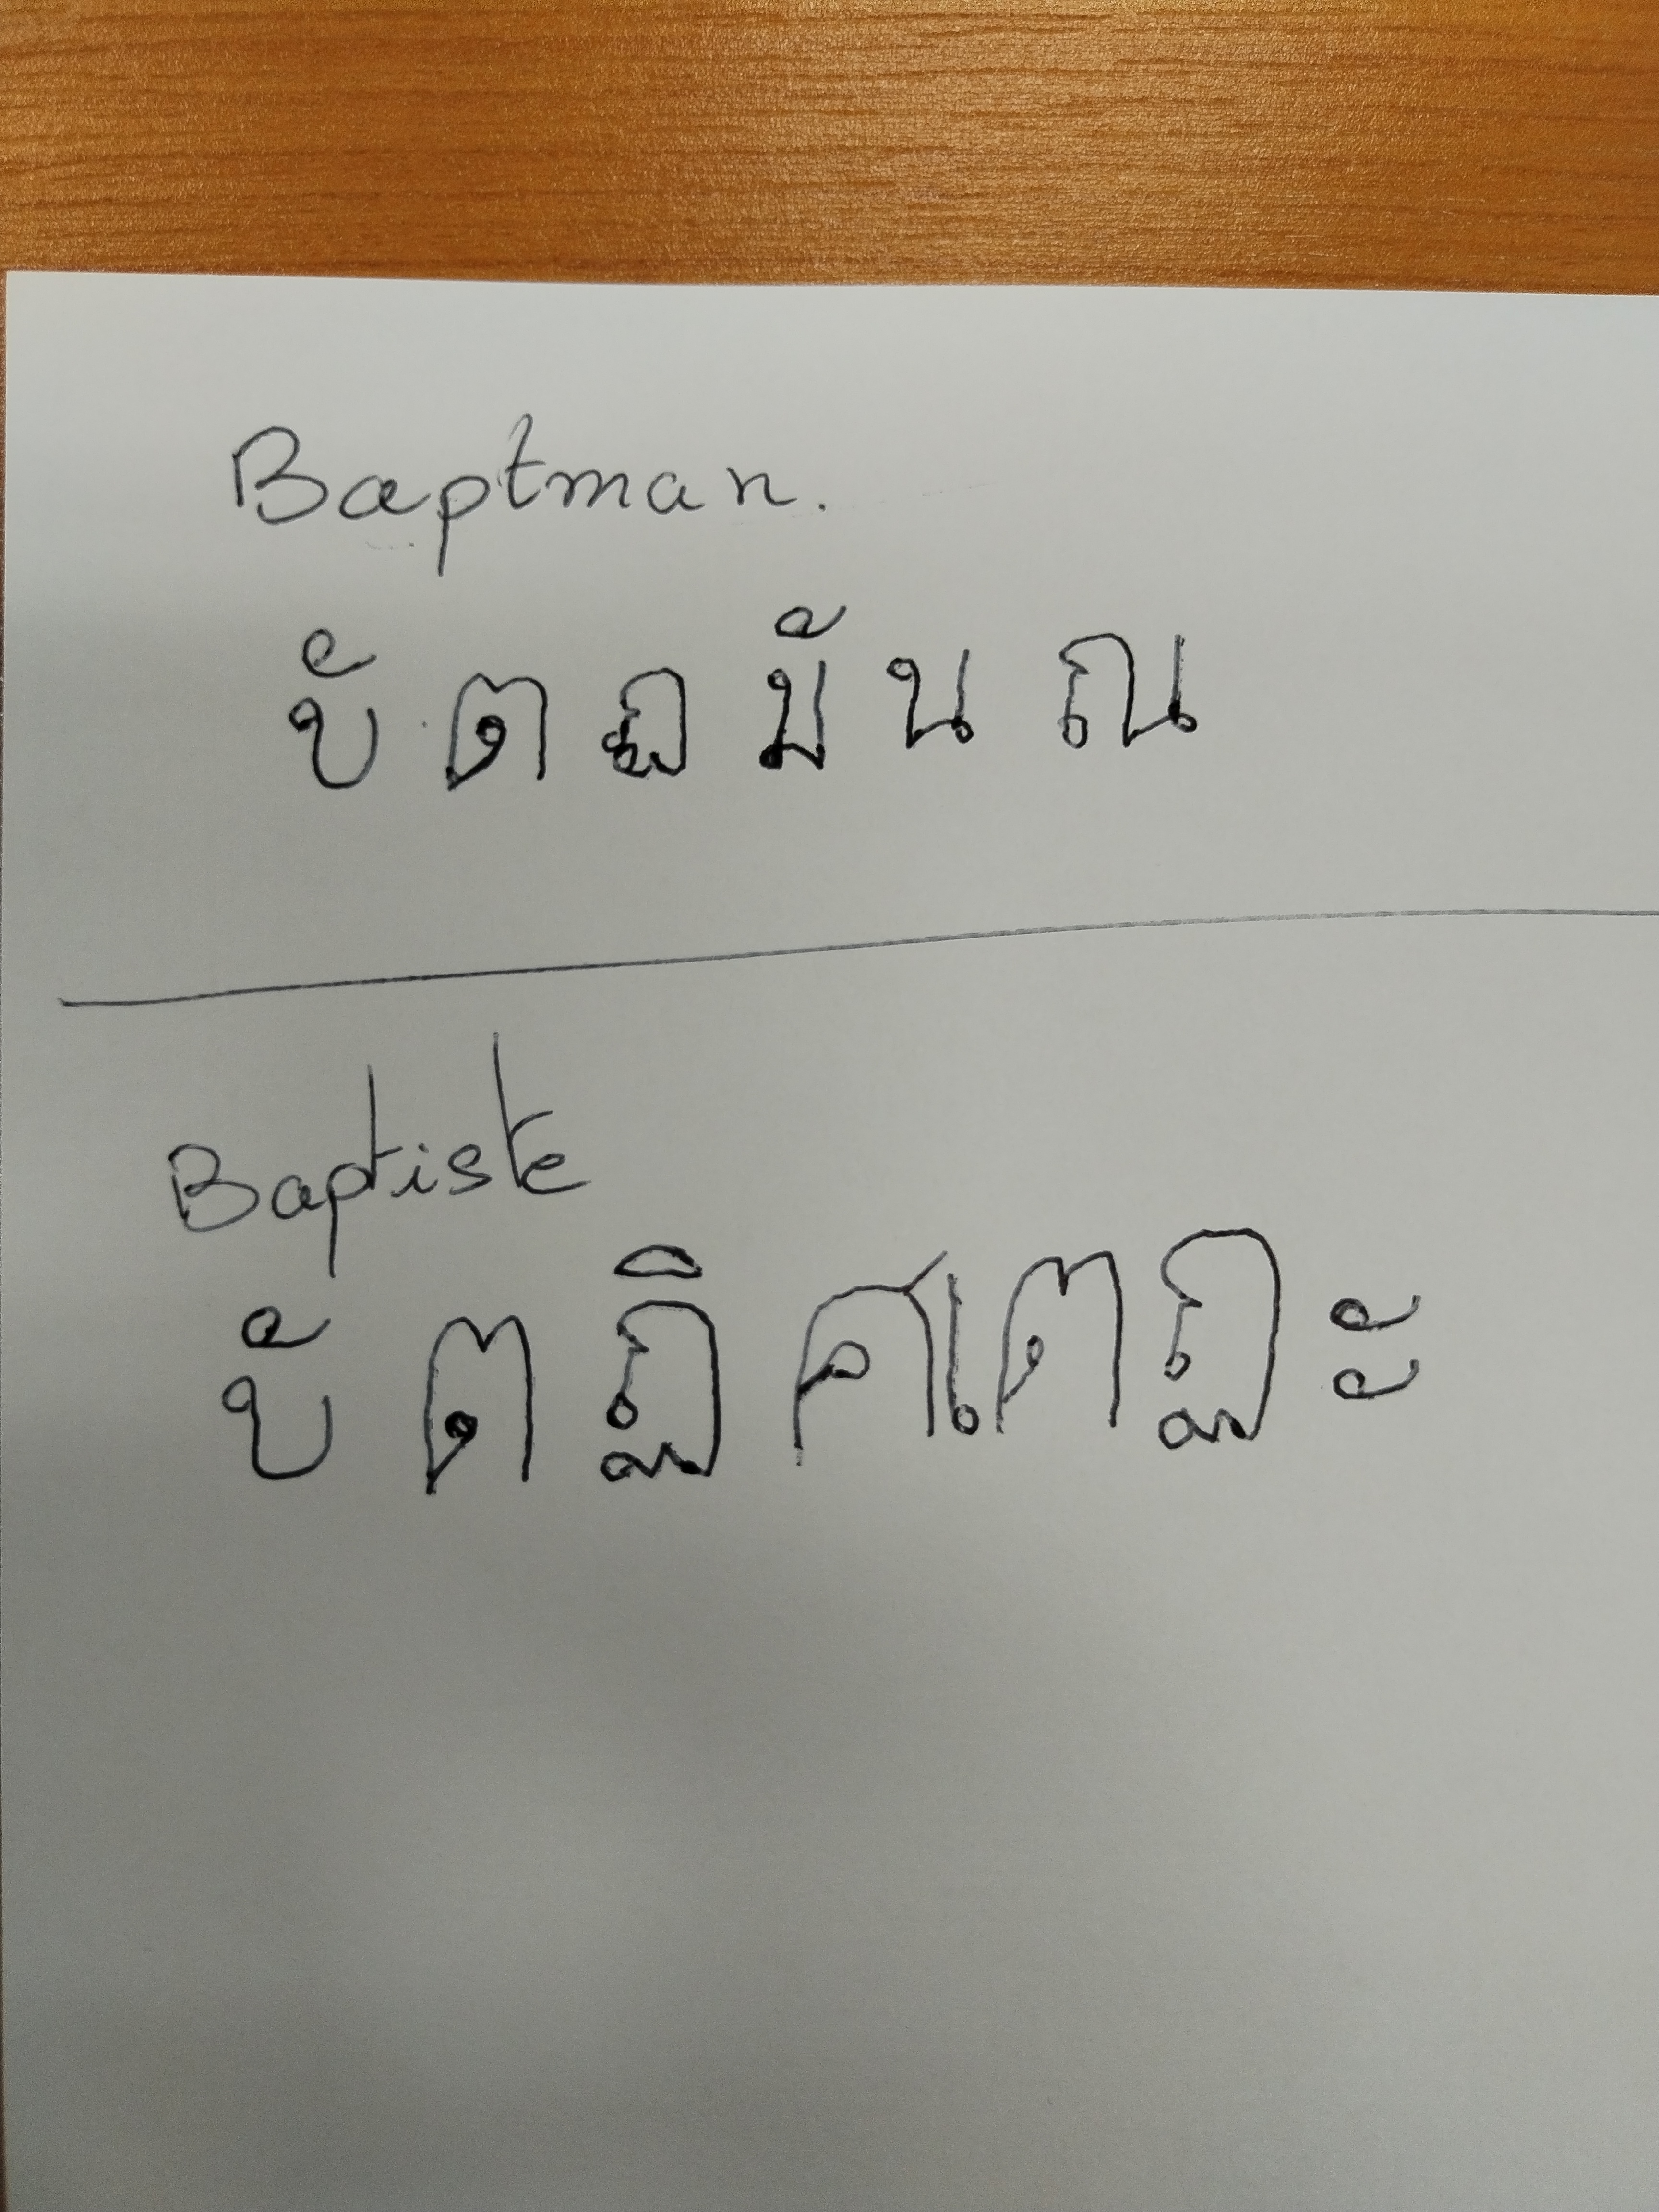 Baptman.
บัตฏมันณ
Baptiste
บัตฏิศเตฏะ